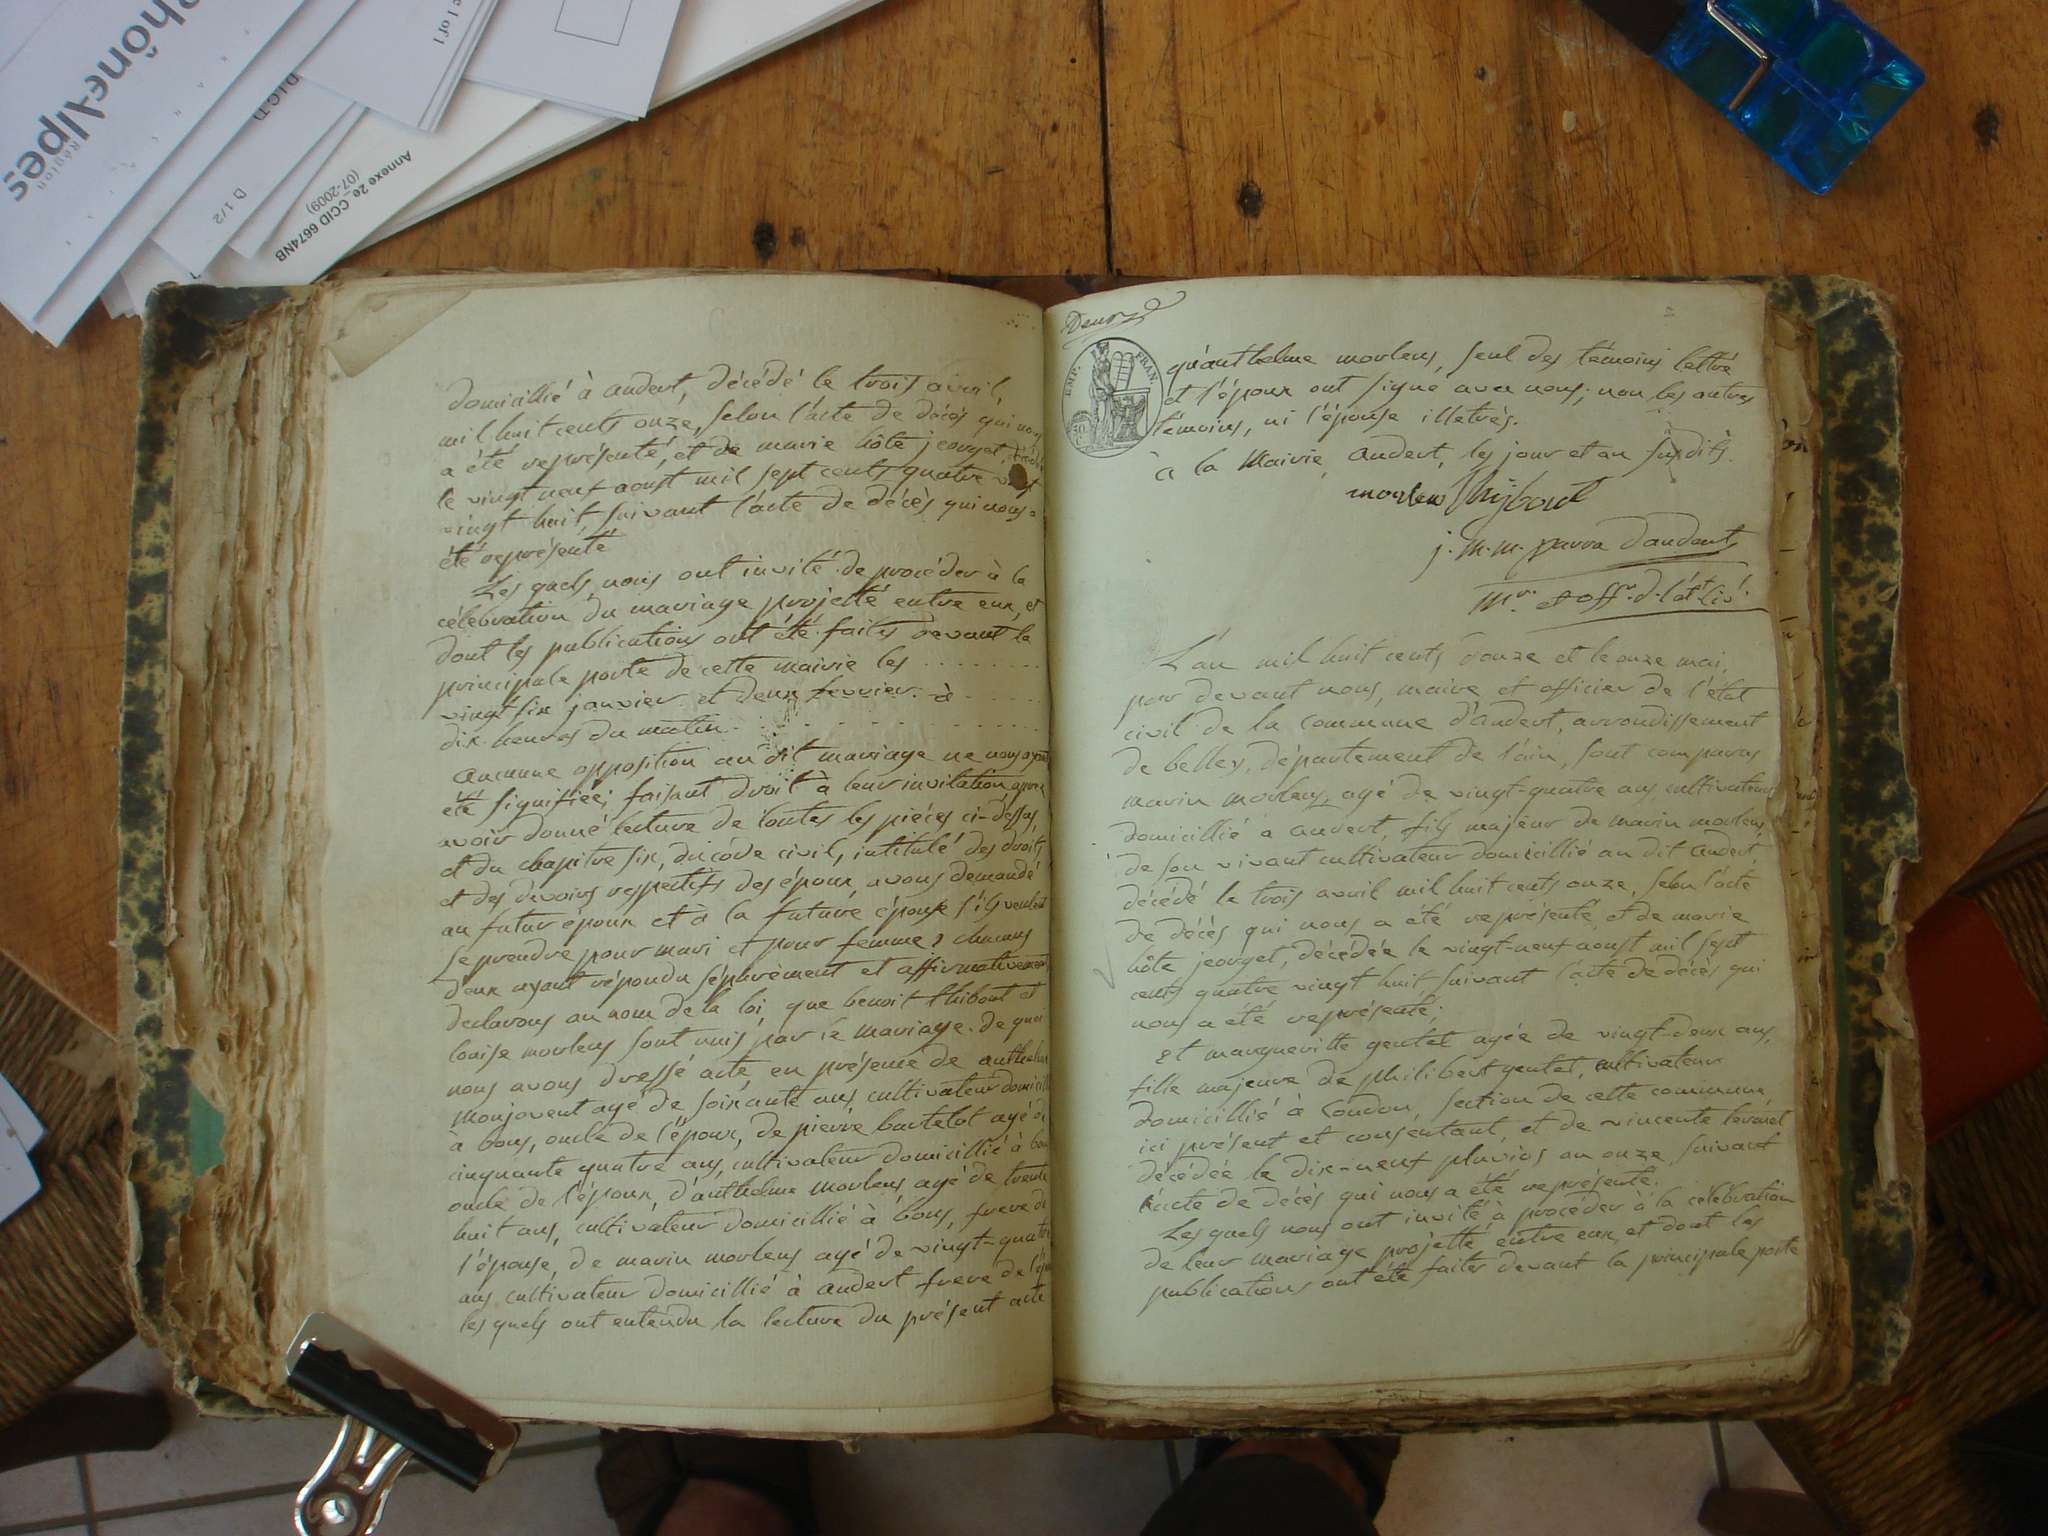 Rhône-Alpes
Région
D.I.C.T
1 of 1
D 1/2
Annexe 2e CCID 6674NB
(07-2009)
domicillié à andert, décédé le trois avril,
mil huit cents onze, selon l'acte de décès qui nous
a été représenté, et de marie hôte jeorget,
le vingt neuf aoust mil sept cents quatre
vingt huit, suivant l'acte de décès qui nous a
été représenté
Les quels nous ont invité de procéder à la
célébration du mariage projetté entre eux, et
dont les publications ont été faites devant la
principale porte de cette mairie les
vingt six janvier et deux fevrier à
dix heures du matin.
aucunne opposition au dit mariage ne nous ayant
été signifiée; faisant droit à leur invitation, apres
avoir donné lecture de toutes les pièces ci-dessus,
et du chapitre six, du côde civil, intitulé des droits
et des devoirs respectifs des époux, avons demandé
au futur époux et à la future épouse s'ils veulent
se prendre pour mari et pour femme; chacuns
deux ayant répondu séparèment et affirmativement
declarons au nom de la loi, que benoit thibout et
louise morlens sont unis par le mariage. de quoi
nous avons dressé acte, en présence de anthelme
monjovent agé de soixante ans cultivateur domicillié
à bons, oncle de l'époux, de pierre bartelot agé de
cinquante quatre ans, cultivateur domicillié à bons
oncle de l'époux, d'anthelme morlens agé de trente
huit ans, cultivateur domicillié à bons, frere de
l'épouse, de marin morlens agé de vingt-quatre
ans cultivateur domicillié à andert frere de
les quels ont entendu la lecture du présent acte
Deux
EMP. FRAN.
qu'anthelme morlens, seul des témoins lettré
et l'époux ont signé avec nous; non les autres
témoins, ni l'épouse illetrés.
à la Mairie, andert, les jour et an susdits.
morlens thibout
j. m. m. parra d'andert
mre. et offr. d. l'ét. civ.
L'an mil huit cents douze et le onze mai,
par devant nous, maire et officier de l'état
civil de la commune d'andert, arrondissement
de belley, département de l'ain, sont comparus
marin morlens, agé de vingt-quatre ans, cultivateur
domicillié à andert, fils majeur de marin morlens
de son vivant cultivateur domicillié au dit andert,
décédé le trois avril mil huit cents onze, selon l'acte
de décès qui nous a été représenté, et de marie
hôte jeorget, décédée le vingt-neuf aoust mil sept
cents quatre vingt huit suivant l'acte de décès qui
nous a été représenté;
et margueritte gentet agée de vingt-deux ans,
fille majeure de philibert gentet, cultivateur
domicillié à Condon, section de cette commune,
ici présent et consentant, et de vincente
décédée le dix-neuf pluvios an onze, suivant
l'acte de décès qui nous a été représenté.
Les quels nous ont invité à procéder à la celébration
de leur mariage projetté entre eux, et dont les
publications ont été faites devant la principale porte